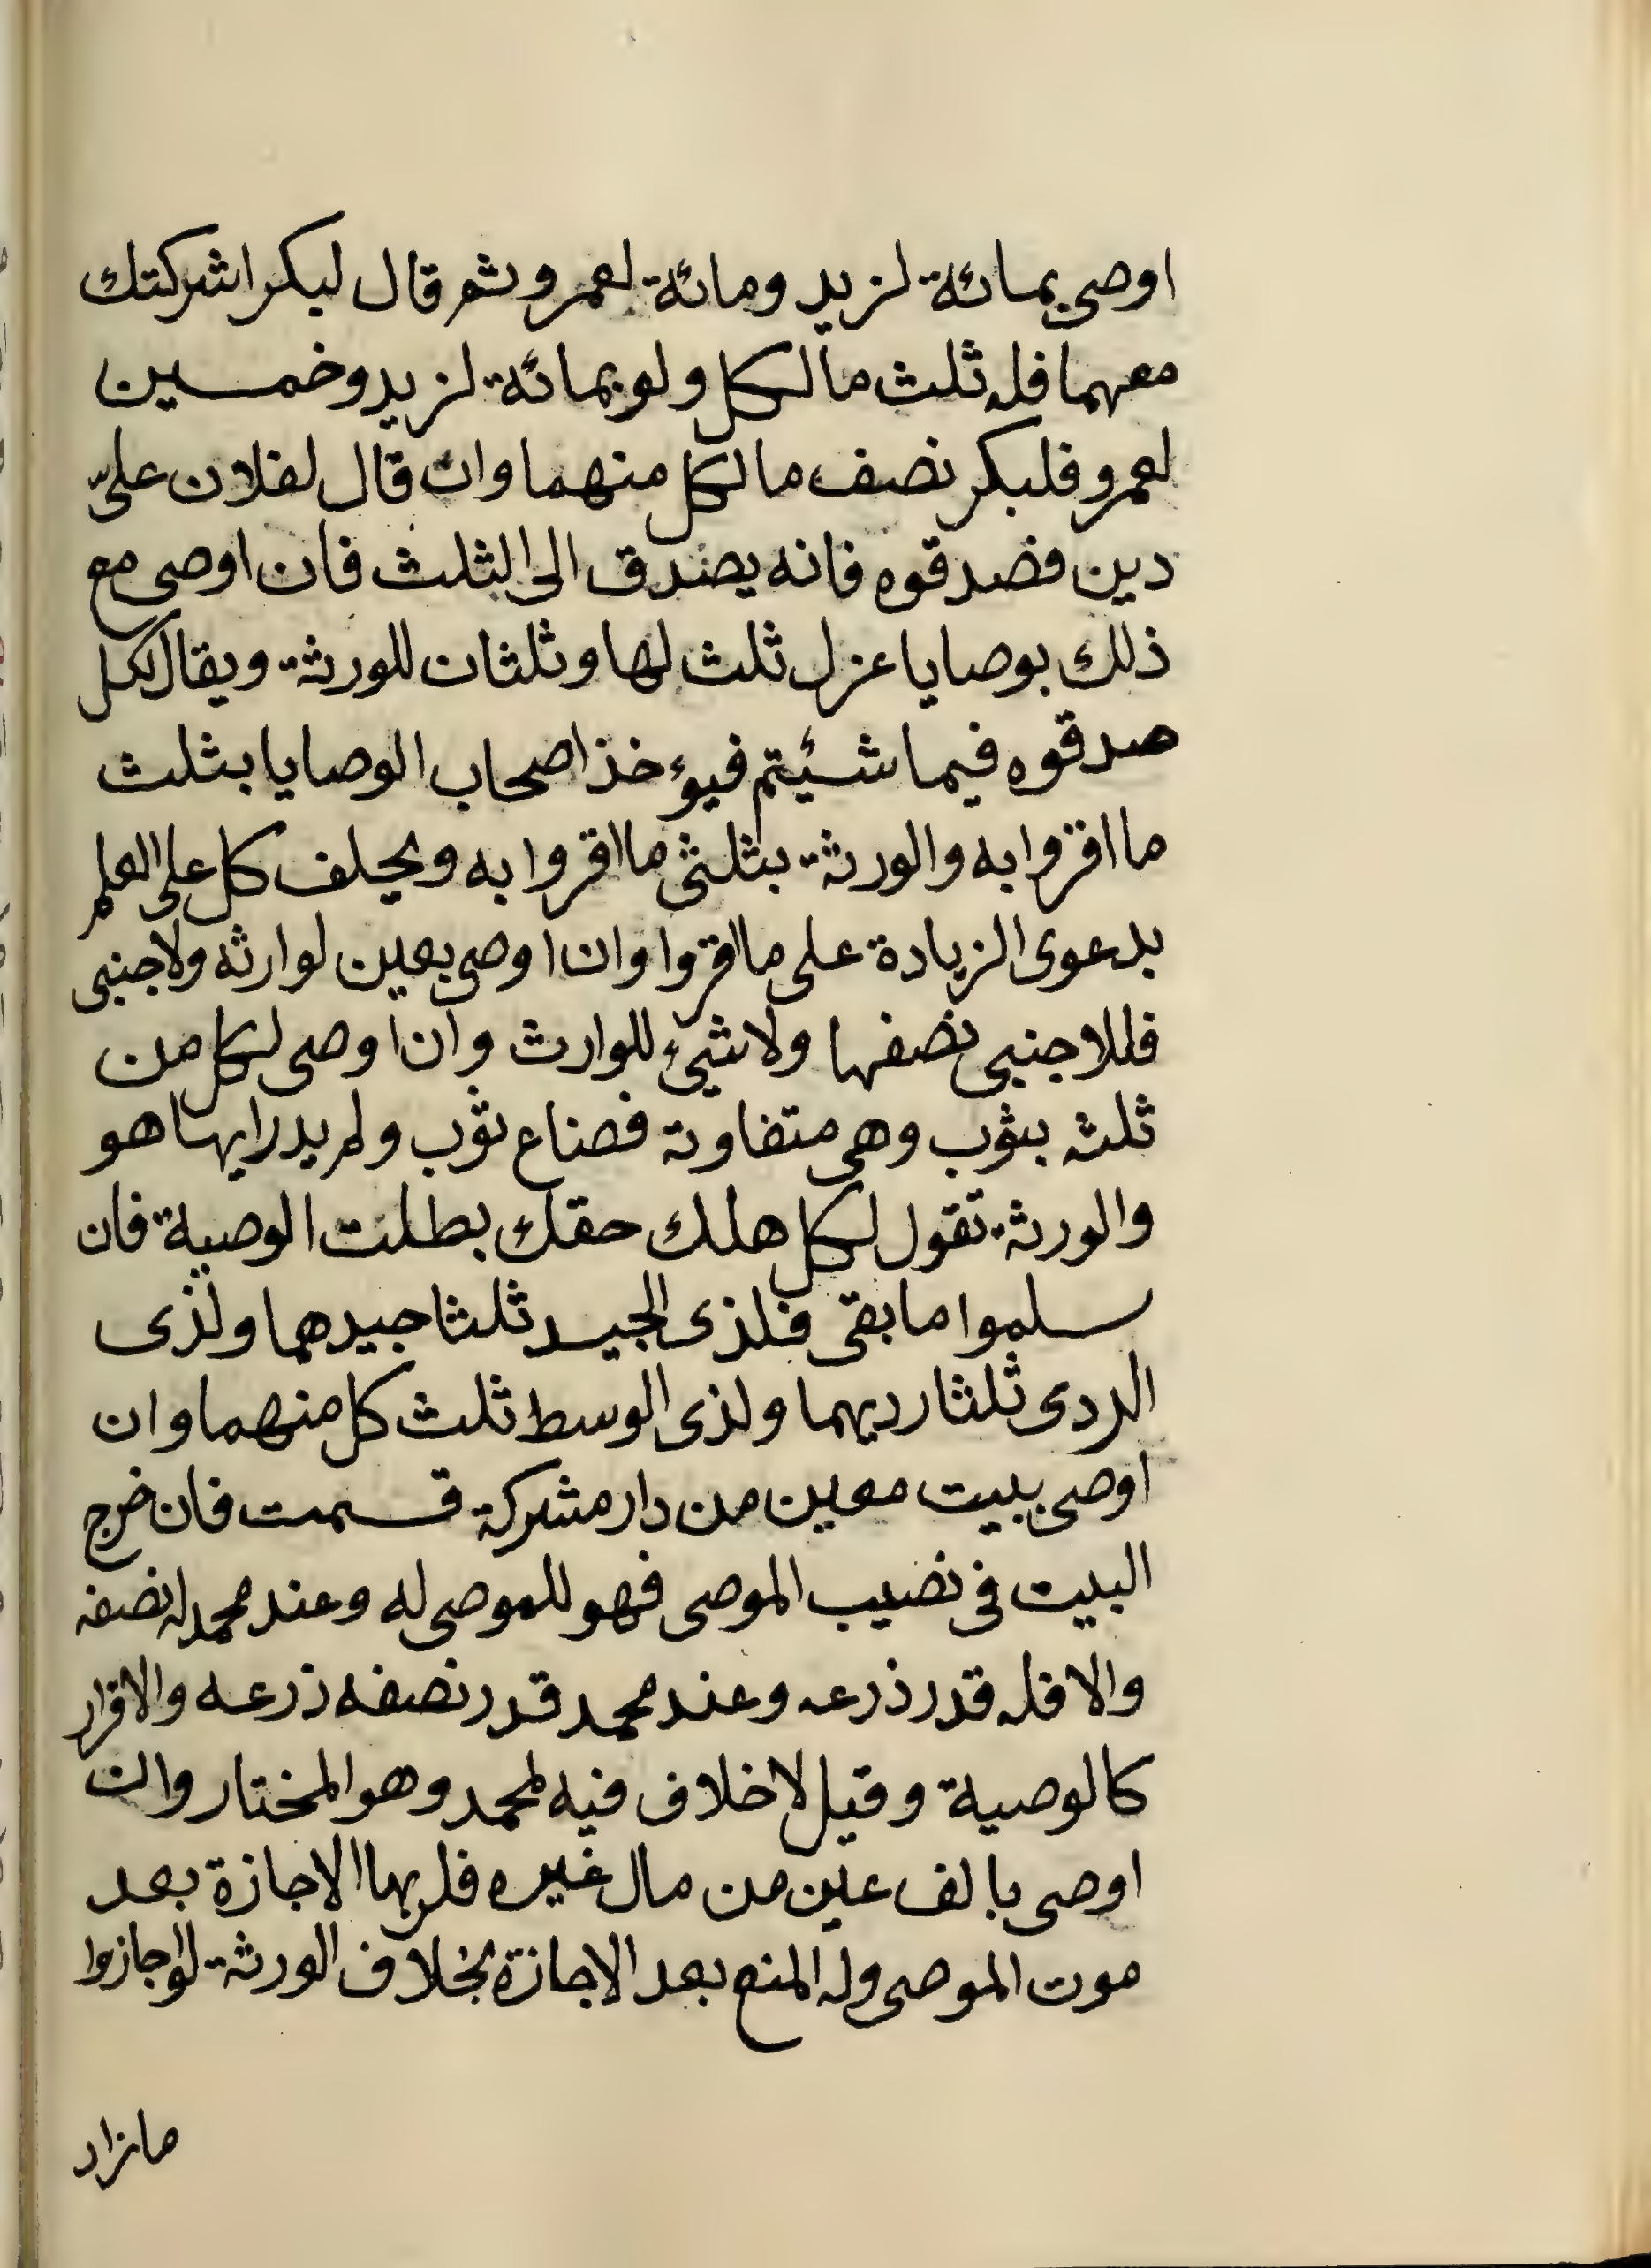 اوصى بمائة لزيد ومائة لعمرو ثم قال لبكر اشركتك
معهما فله ثلث ما لكل ولو بمائة لزيد وخمسين
لعمرو فلبكر نصف ما لكل منهما وان قال لفلان علىّ
دين فصدقوه فانه يصدق الى الثلث فان اوصى مع
ذلك بوصايا عزل ثلث لها وثلثان للورثة ويقال لكل
صدقوه فيما شئيتم فيؤخذ اصحاب الوصايا بثلث
ما اقروا به والورثة بثلثى ما اقروا به ويحلف كل على العلم
بدعوى الزيادة على ما اقروا وان اوصى بعين لوارثه ولاجنبى
فللاجنبى نصفها ولا شيئ للوارث وان اوصى لكل من
ثلثه بثوب وهى متفاوتة فضاع ثوب ولم يدر ايها هو
والورثة تقول لكل هلك حقك بطلت الوصية فان
سلموا ما بقى فلذى الجيد ثلثا جيدهما ولذى
الردى ثلثا رديهما ولذى الوسط ثلث كل منهما وان
اوصى ببيت معين من دار مشركة قسمت فان خرج
البيت فى نصيب الموصى فهو للموصى له وعند محمد له نصفه
والا فله قدر ذرعه وعند محمد قدر نصفه ذرعه والاقرار
كالوصية وقيل لا خلاف فيه لمحمد وهو المختار وان
اوصى بالف عين من مال غيره فلربها الاجازة بعد
موت الموصى وله المنع بعد الاجازة بخلاف الورثة لو اجازوا
ما زاد